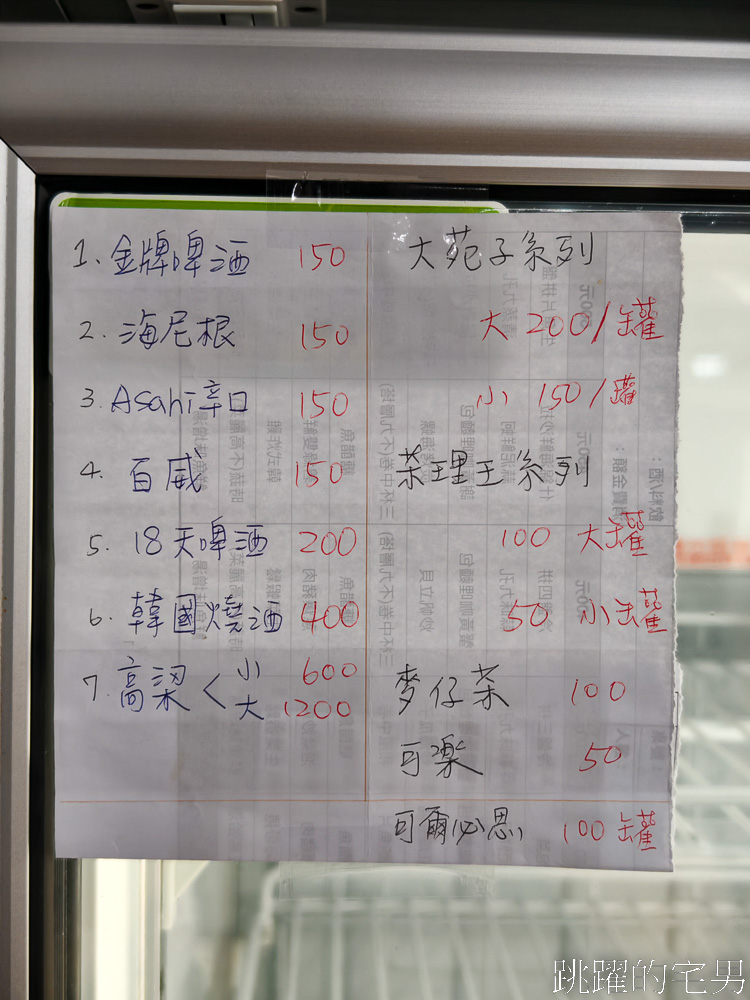 1. 金牌啤酒 150
2. 海尼根 150
3. Asahi辛口 150
4. 百威 150
5. 18天啤酒 200
6. 韓國燒酒 400
7. 高梁 < 小 600
大 1200
大苑子系列
大 200/罐
小 150/罐
茶理王系列
100 大罐
50 小罐
麥仔茶 100
可樂 50
可爾必思 100罐
跳躍的宅男